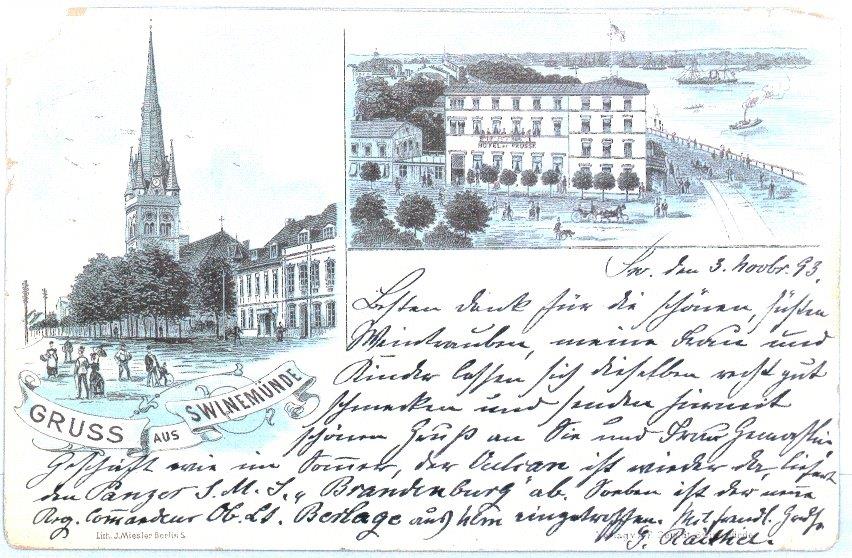 HOTEL DE PRUSSE
GRUSS AUS SWINEMÜNDE
Sw. den 3. Novbr. 93.
Besten Dank für die schönen, süßen
Weintrauben, meine Frau und
Kinder lassen sich dieselben recht gut
schmecken und senden hiermit
schönen Gruß an Sie und Frau Gemahlin.
Geschäft wie im Sommer, der Vulcan ist wieder da, liefert
den Panzer S. M. S. „Brandenburg" ab. Soeben ist der neue
Reg. Commandeur Ob. Lt. Berlage aus Ulm eingetroffen. Mit freundl. Gruße
Lith. J. Miesler Berlin S.